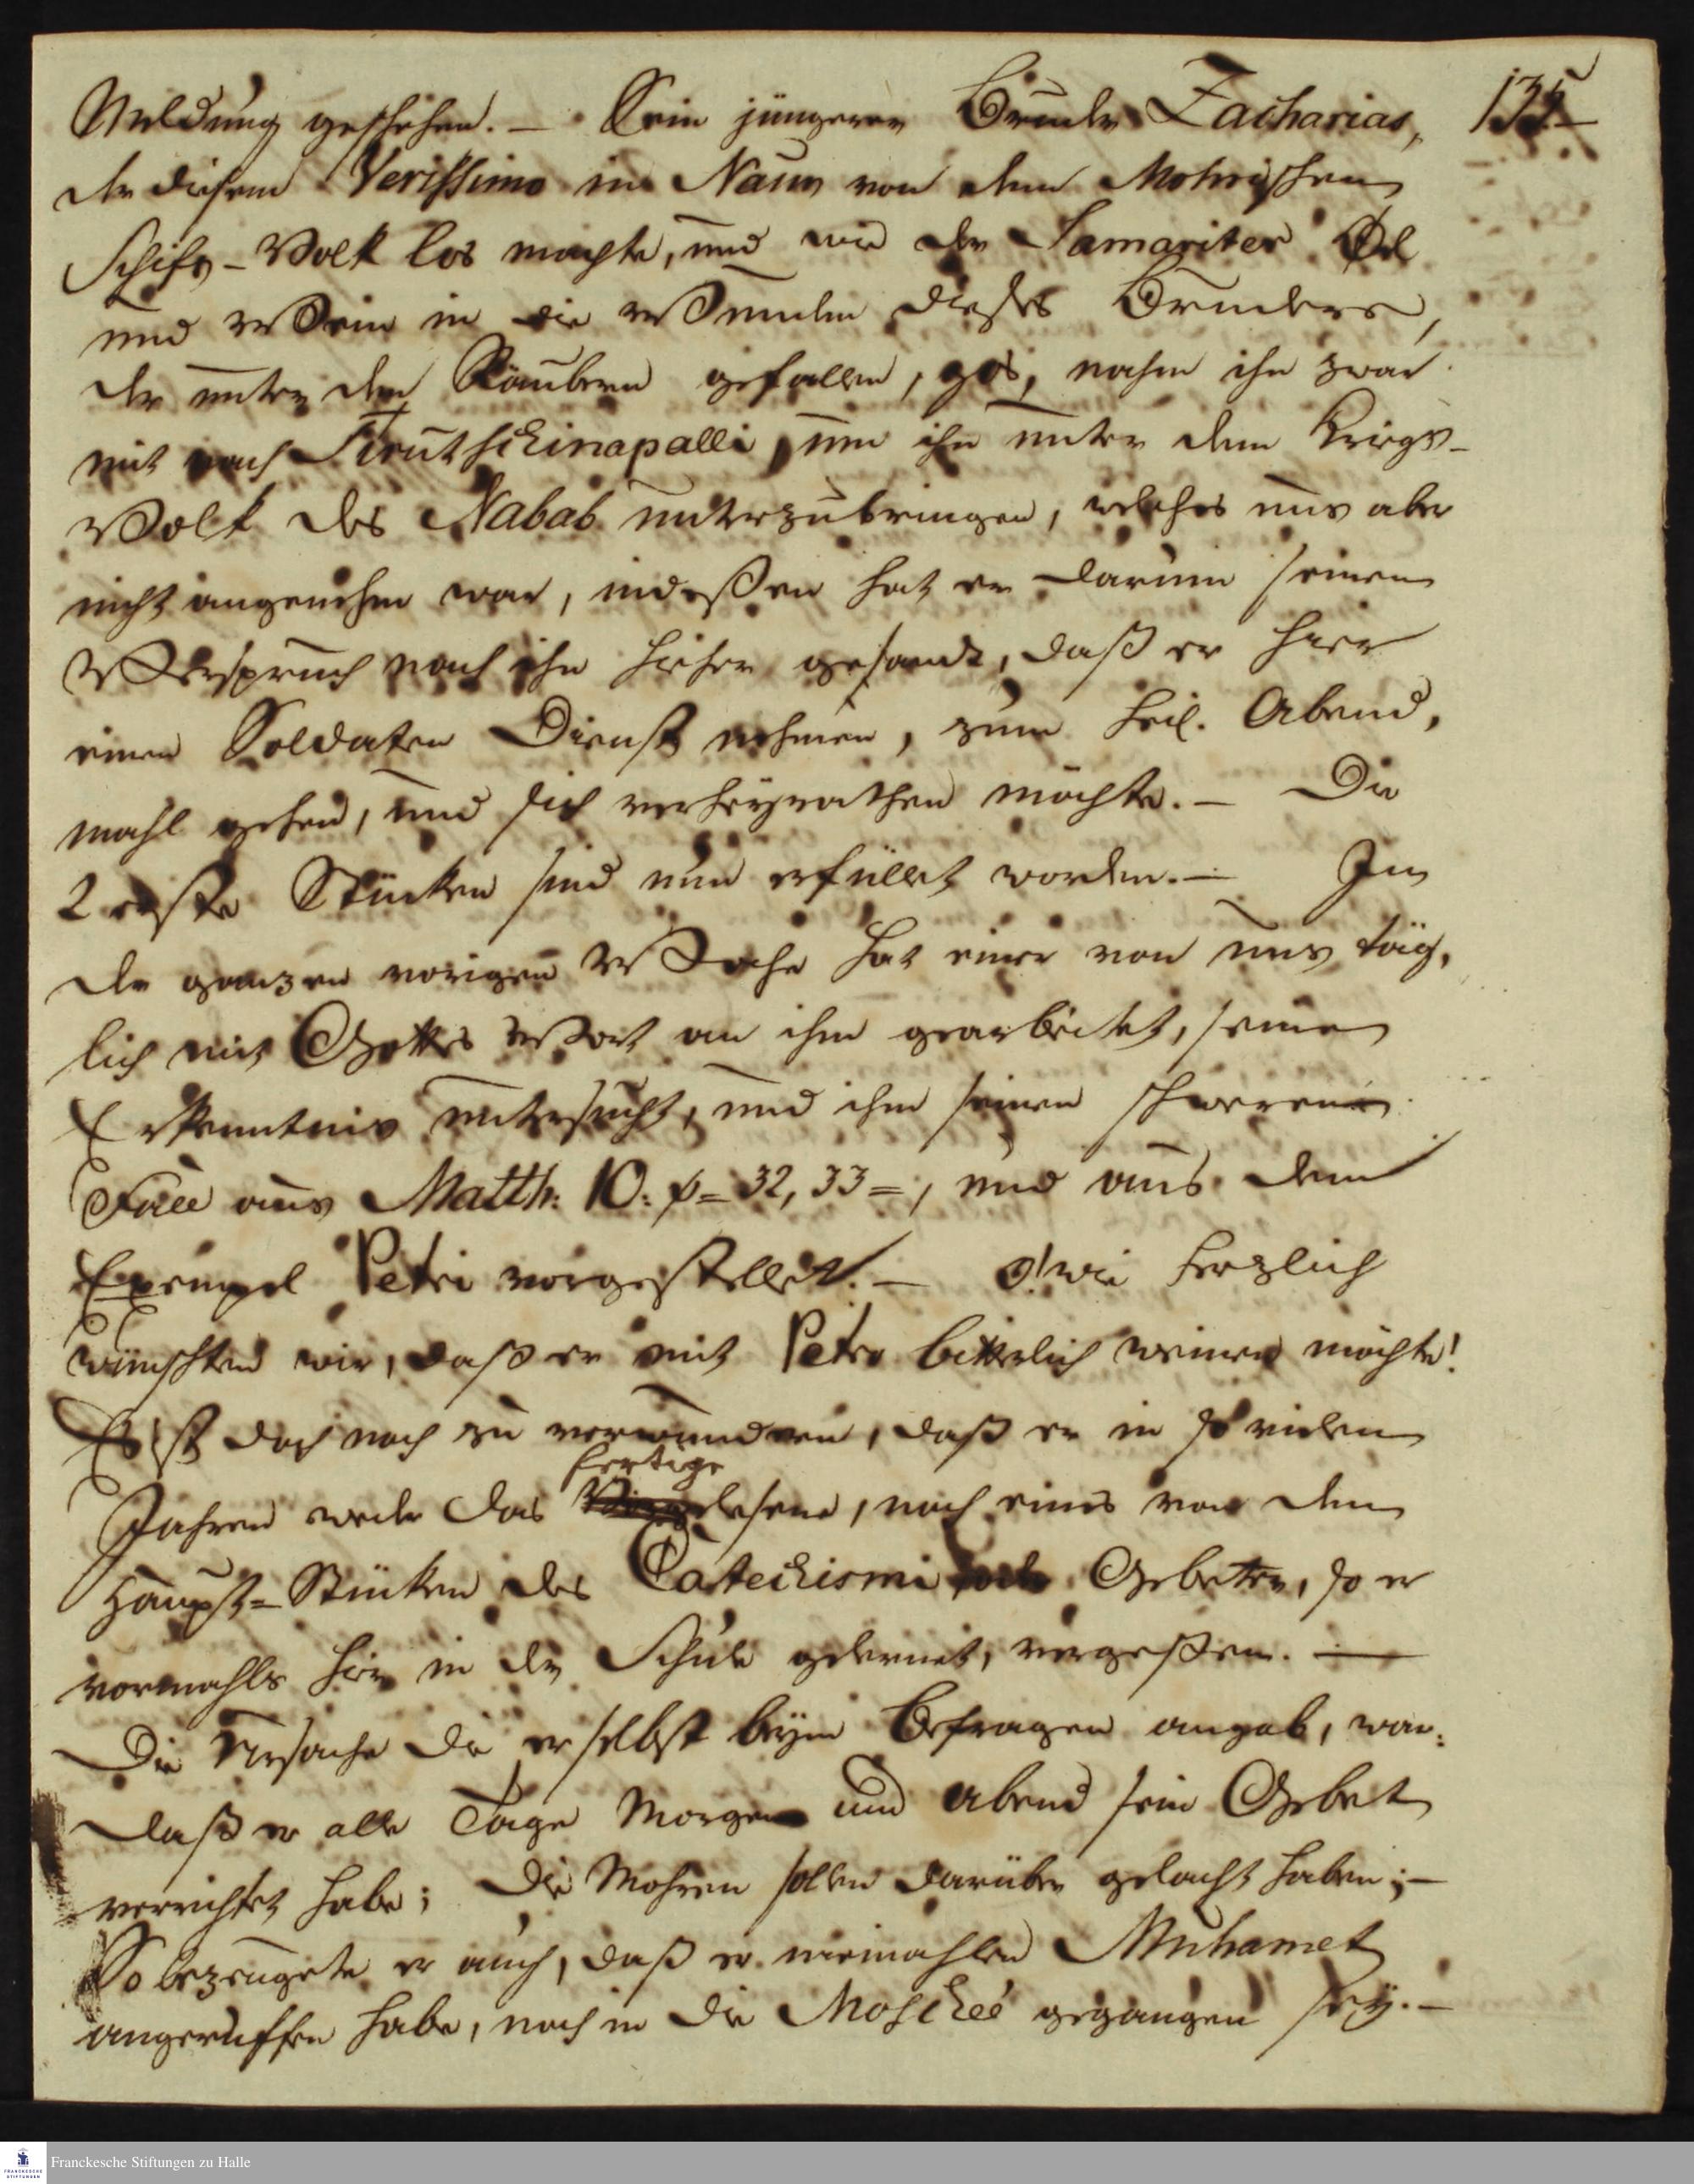 135.
Meldung geschehen. – Sein jüngerer Bruder Zacharias,
der diesen Verissimo im Naun von dem Mohrischen
Schifs-Volk los machte, und wie der Samariter Oel
und Wein in die Wunden dieses Bruders,
der unter den Räubern gefallen, gos, nahm ihn zwar
mit nach Tirutschinapalli, um ihn unter dem Kriegs-
Volk des Nabab unterzubringen, welches uns aber
nicht angenehm war, indeßen hat er darum seinem
Verspruch nach ihn hieher gesandt, daß er hier
einen Soldaten Dienst nehmen, zum heil. Abend,
mahl gehen, und sich verheyrathen möchte. – Die
2 erste Stücken sind nun erfüllet worden. – In
der ganzen vorigen Woche hat einer von uns täg,
lich mit Gottes Wort an ihm gearbeitet, seine
Erkenntnis untersucht, und ihm seinen schweren
Fall aus Matth: 10: v= 32, 33=, und aus dem
Exempel Petri vorgestellet. – O! wie herzlich
wünschten wir, daß er mit Petro bitterlich weinen möchte!
Es ist doch noch zu verwundern, daß er in so vielen
fertige
Jahren weder das lesene, noch eines von den
Haupt=Stücken des Catechismi Gebeter, so er
vormahls hier in der Schule gelernet, vergeßen. –
Die Ursache die er selbst beym Befragen angab, war:
daß er alle Tage Morgen und Abend sein Gebet
verrichtet habe; die Mohren sollen darüber gelacht haben; –
So bezeugete er auch, daß er niemahlen Muhamet
angeruffen habe, noch in die Moscheé gegangen sey. –
Franckesche Stiftungen zu Halle